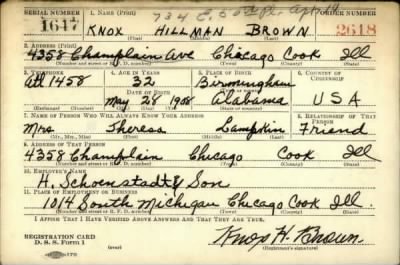 SERIAL NUMBER 1. NAME (Print) 734 E. 50th Pl. Apt ORDER NUMBER
1617 KNOX HILLMAN BROWN 2618
(First) (Middle) (Last)
2. ADDRESS (Print)
4358 Champlain Ave Chicago Cook Ill
(Number and street or R. F. D. number) (Town) (County) (State)
3. TELEPHONE 4. AGE IN YEARS 5. PLACE OF BIRTH 6. COUNTRY OF CITIZENSHIP
Att 1458 32 Birmingham
DATE OF BIRTH (Town or county)
May 28 1908 Alabama USA
(Exchange) (Number) (Mo.) (Day) (Yr.) (State or country)
7. NAME OF PERSON WHO WILL ALWAYS KNOW YOUR ADDRESS 8. RELATIONSHIP OF THAT PERSON
Mrs Theresa Lampkin Friend
(Mr., Mrs., Miss) (First) (Middle) (Last)
9. ADDRESS OF THAT PERSON
4358 Champlain Chicago Cook Ill
(Number and street or R. F. D. number) (Town) (County) (State)
10. EMPLOYER'S NAME
H. Schoenstadt & Son
11. PLACE OF EMPLOYMENT OR BUSINESS
1014 South Michigan Chicago Cook Ill.
(Number and street or R. F. D. number) (Town) (County) (State)
I AFFIRM THAT I HAVE VERIFIED ABOVE ANSWERS AND THAT THEY ARE TRUE.
REGISTRATION CARD
D. S. S. Form 1 (over) Knox H. Brown
(Registrant's signature)